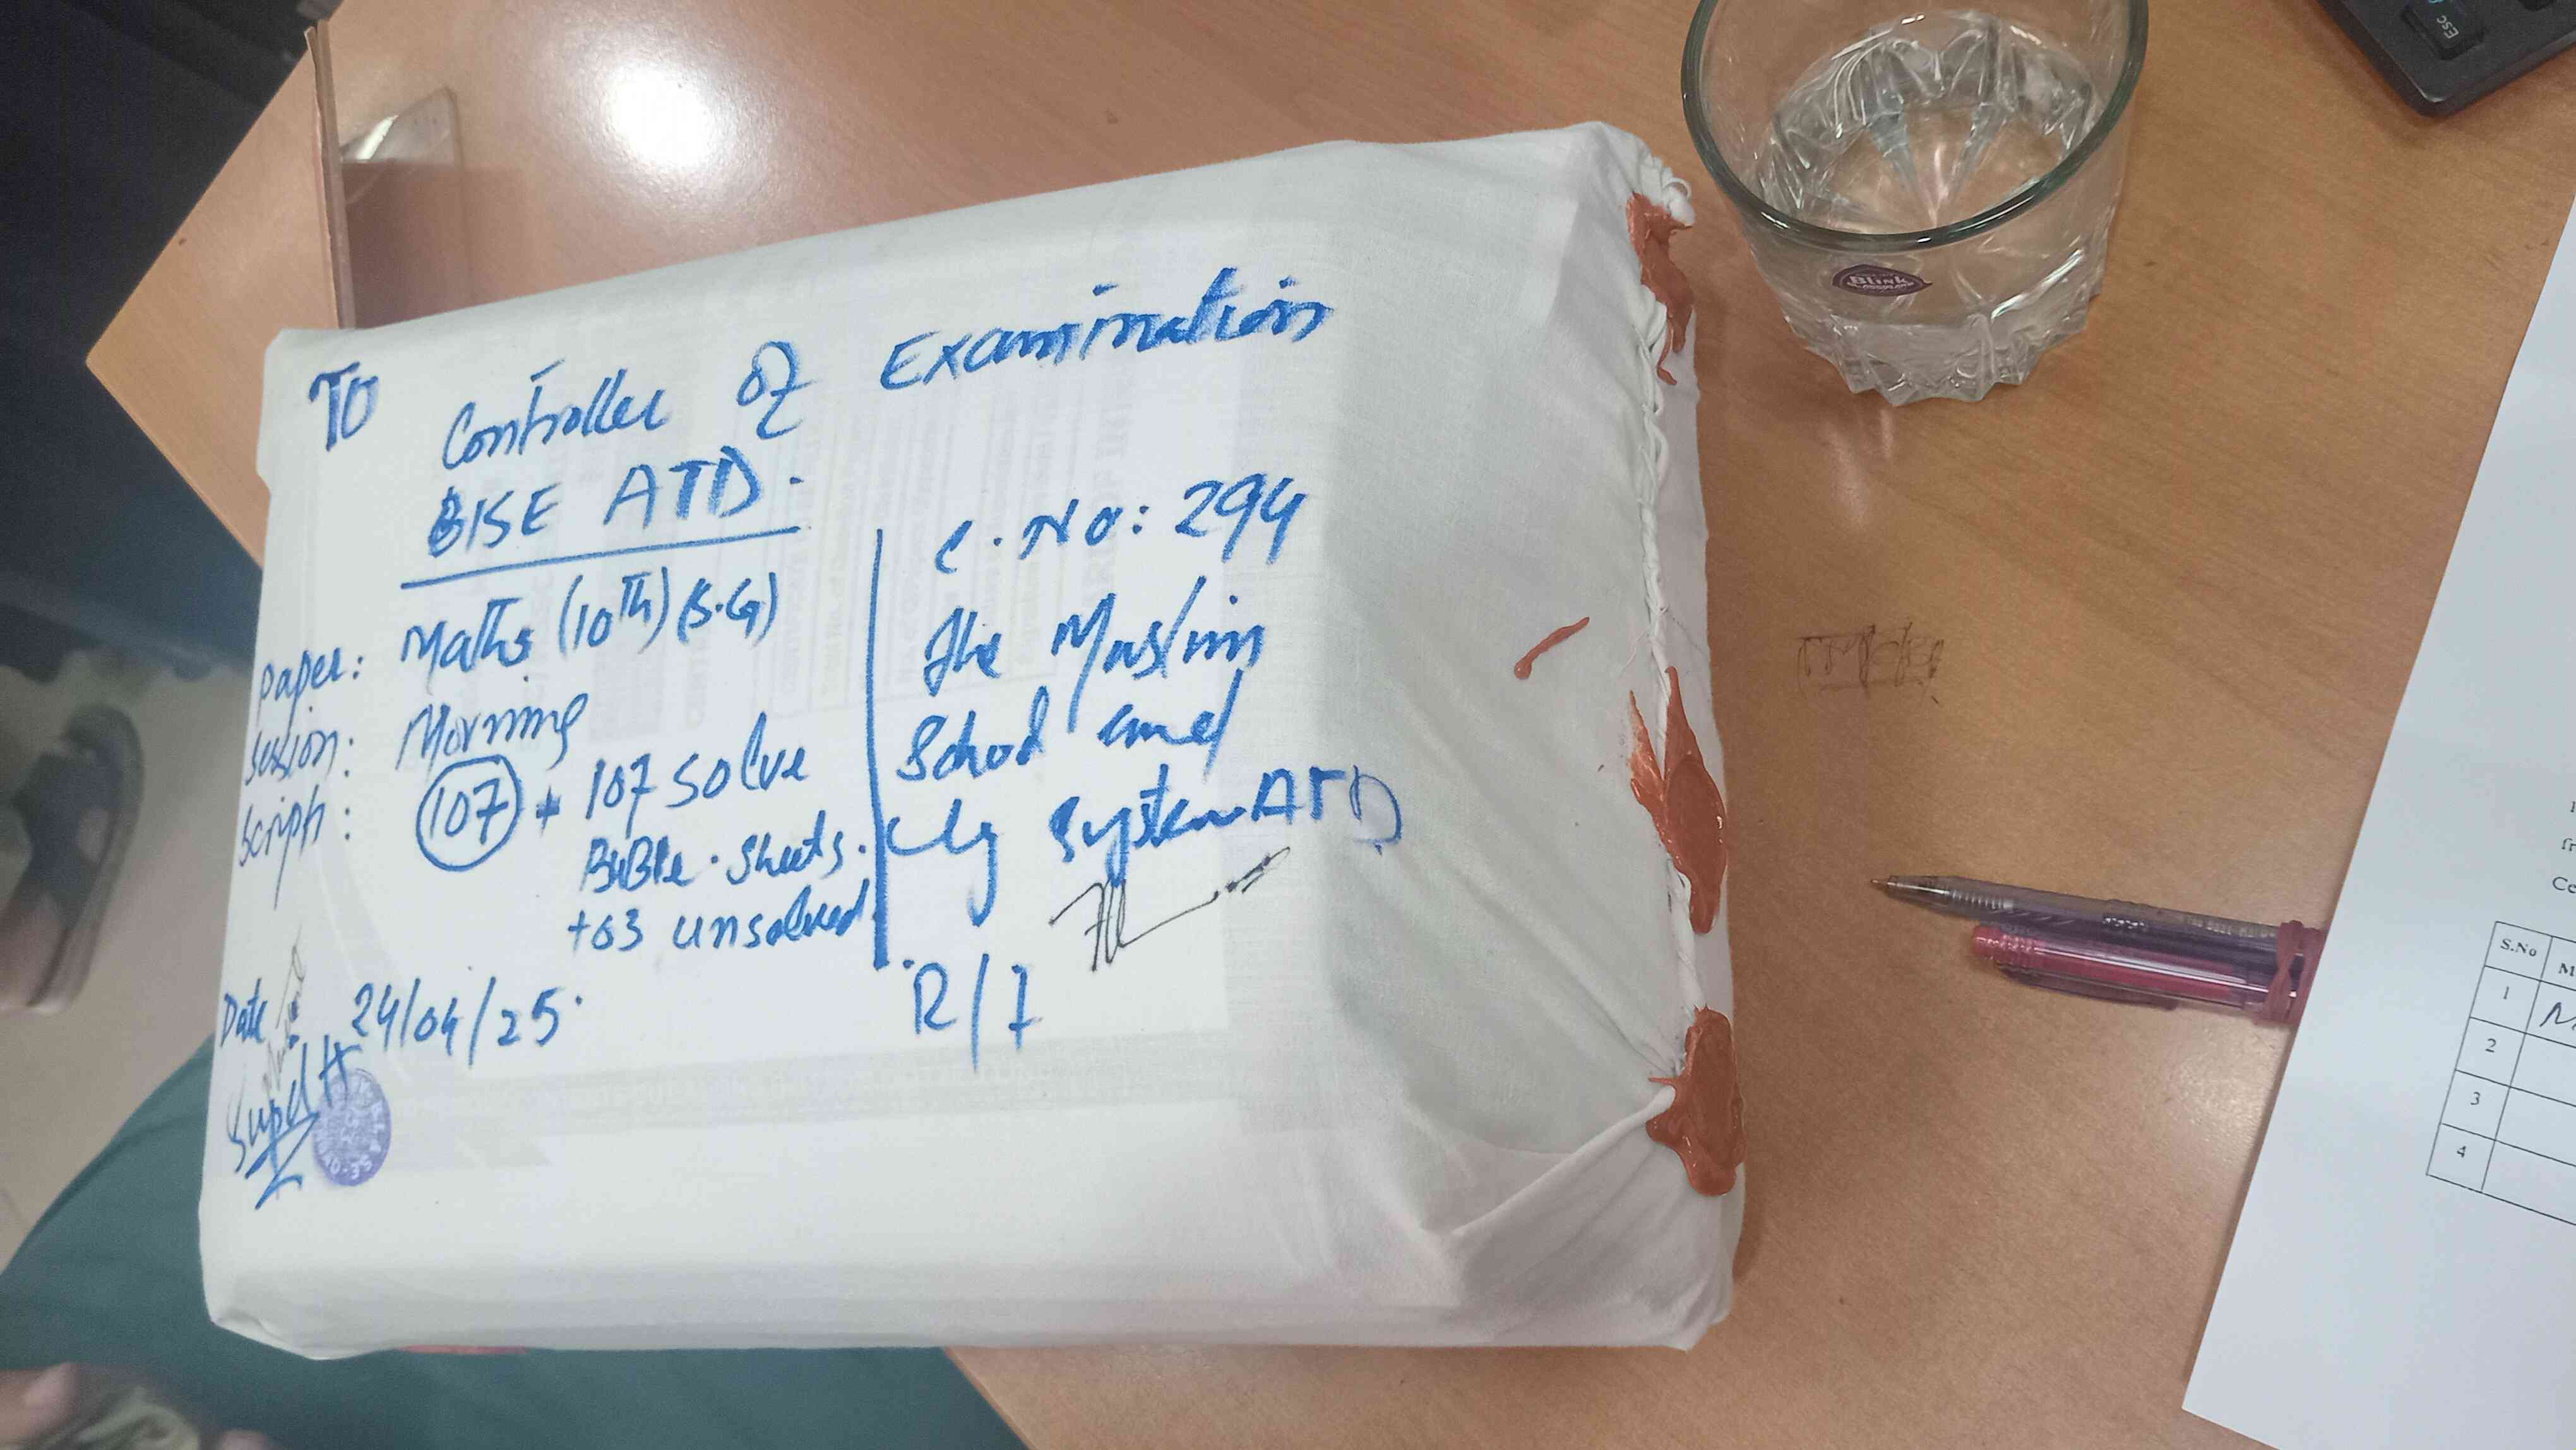 TO
Controller of Examination
BISE ATD.
Paper: Maths (10Th) (S.G)
Session: Morning
Script: 107 + 107 Solve
BuBBle. Sheets.
+03 unsolved.
Date 24/04/25.
Supdtt
C. No: 294
The Muslim
School and
Clg System ATD
R/7
Blink
Esc
S.No
1
2
3
4